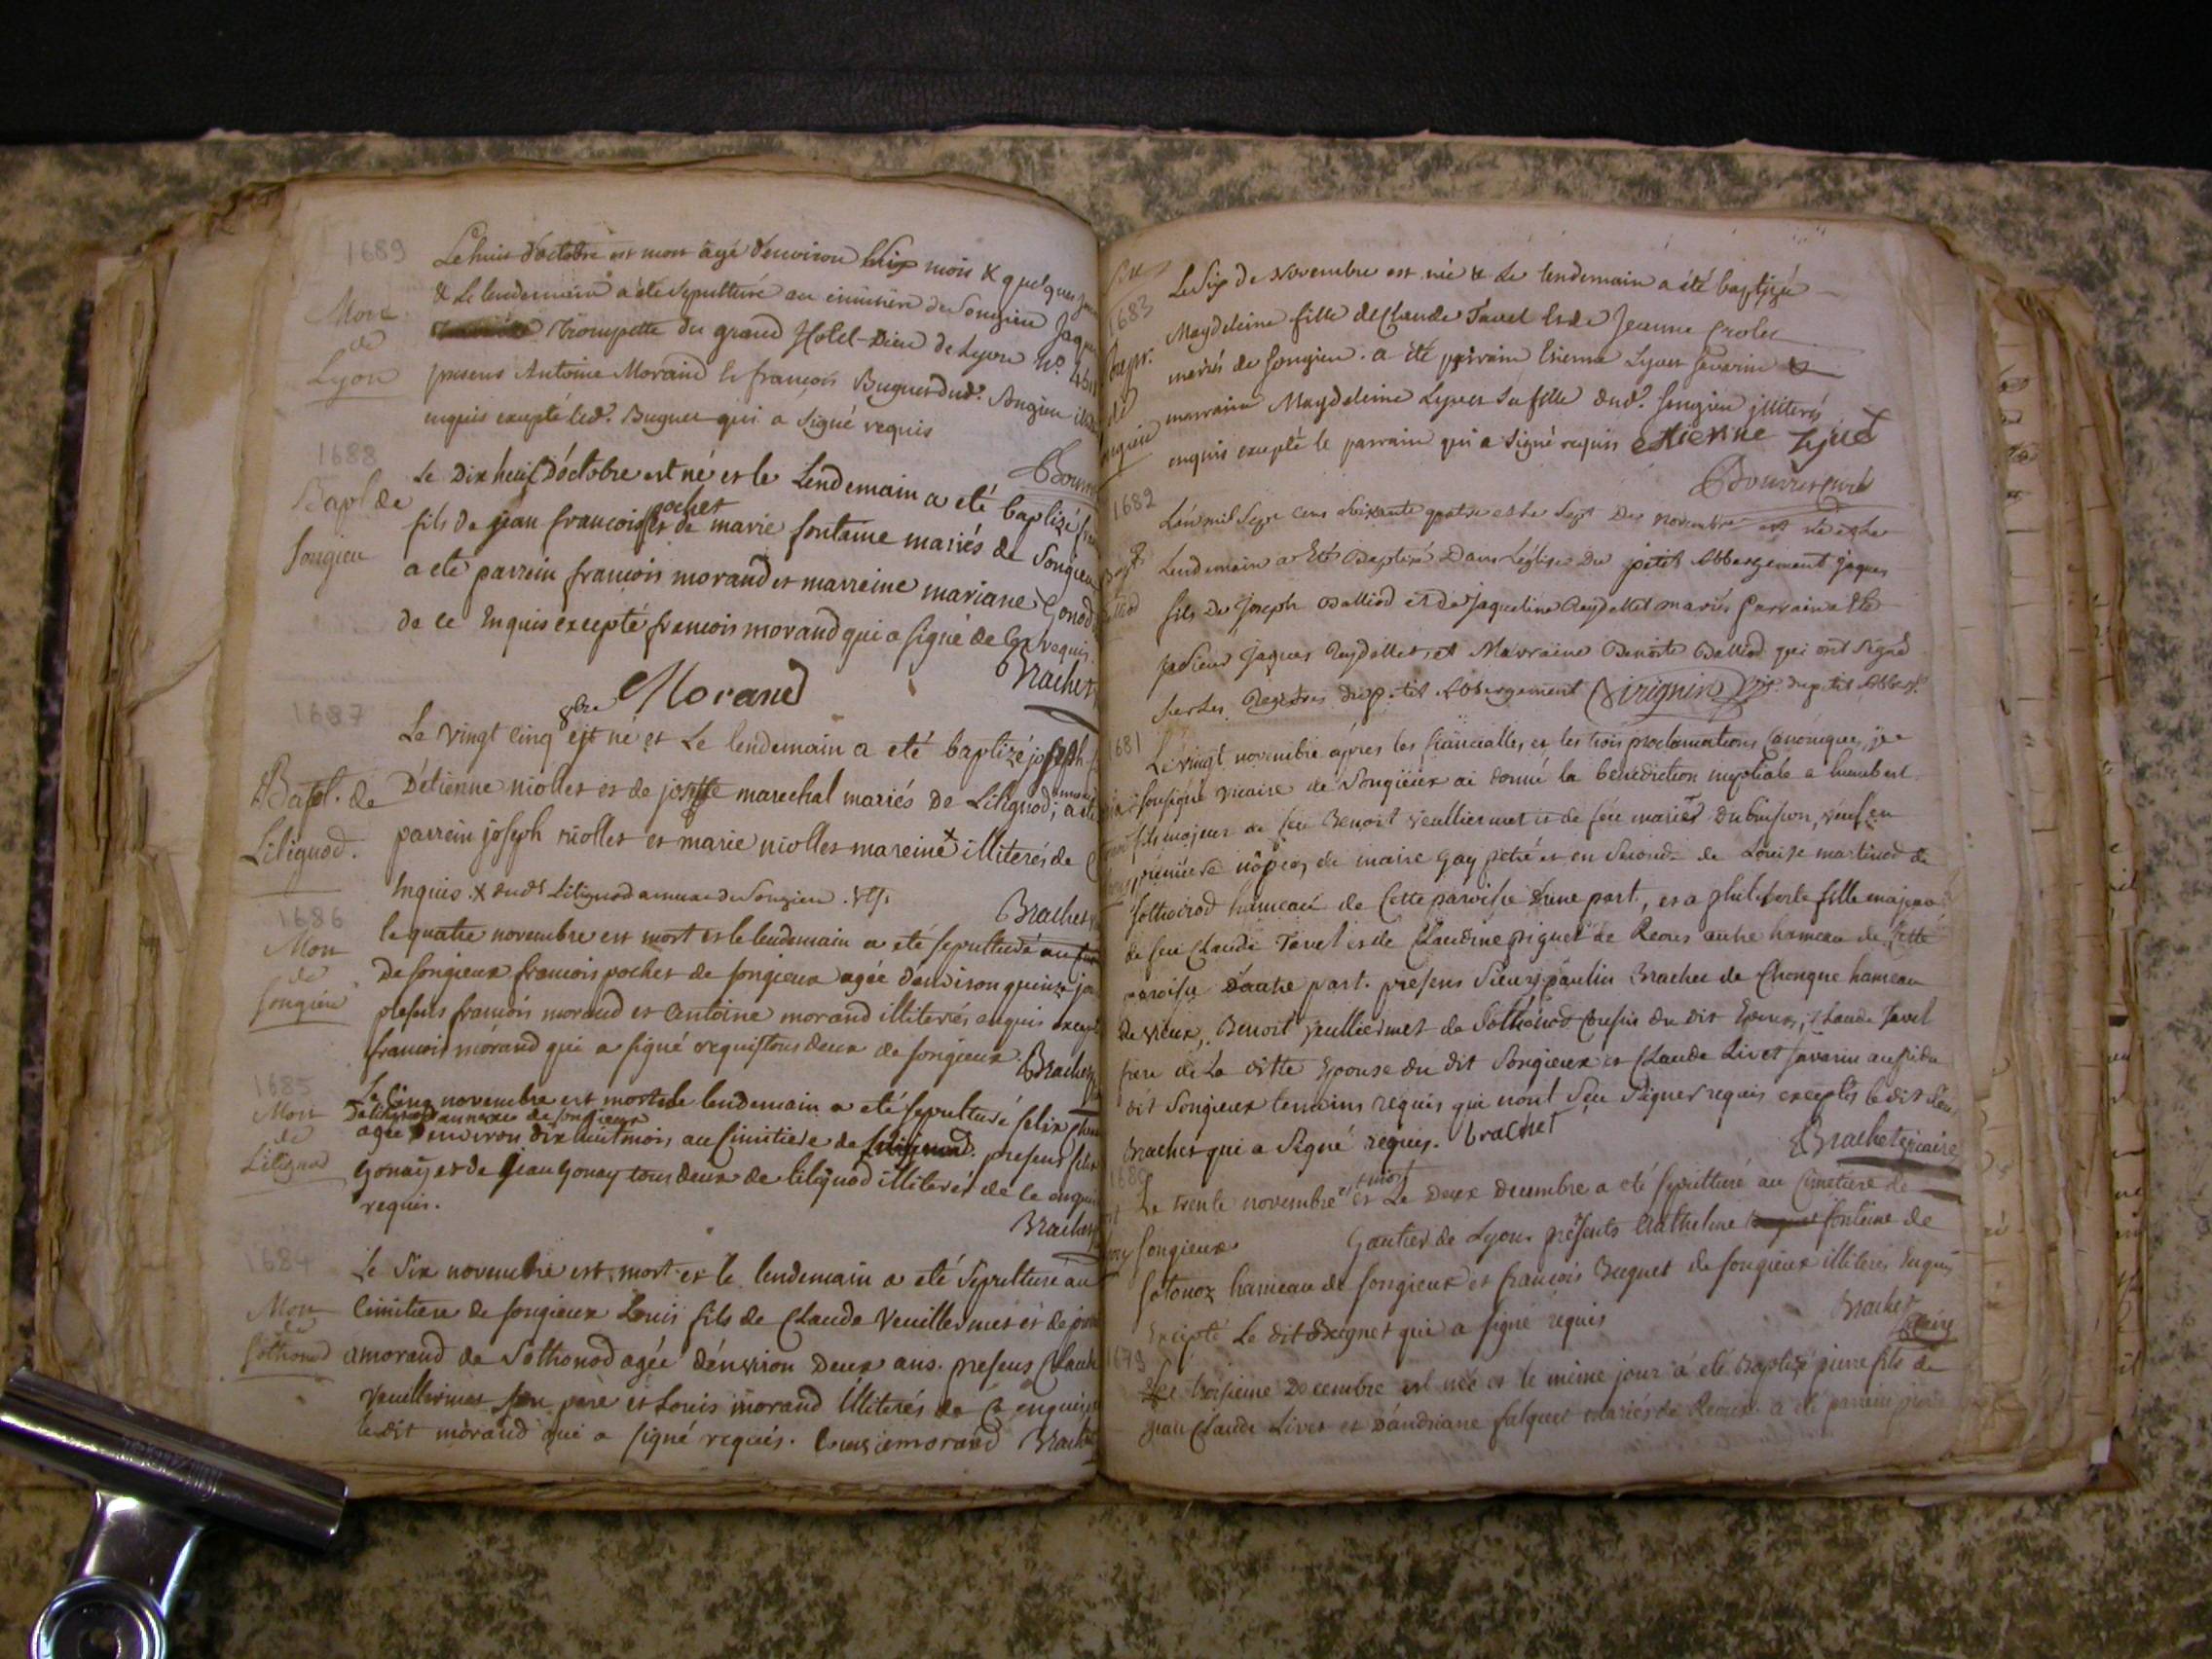 1689
Le huit d'octobre est mort agé d'environ six mois & quelques
& Le lendemain a été sepulturé au cimitiere de Songieu Jaques
Mort
de
Lyon
Trompette du grand Hotel-Dieu de Lyon N°.
presens Antoine Morand et françois Buguet dud. Songieu
enquis excepté led. Buguet qui a signé requis
1688
Bapt de
Songieu
Le Dix heuit D'octobre est né et le Lendemain a eté baptizé
fils de jean francois pochet et de marie fontaine mariés de Songieu
a eté parrein francois morand et marreine mariane Gonod
de ce Enquis excepté francois morand qui a signé de ce requis
Morand
Brachet
1687
Bapt. de
Lilignod.
Le vingt cinq 8bre est né et Le lendemain a eté baptizé joseph
D'étienne niollet et de josepte marechal mariés de Lilignod; a eté
parrein joseph niollet et marie niollet mareine x illiterés de
Enquis. x dudt Lilignod annexe de Songieu.
Brachet
1686
Mort
de
Songieu
le quatre novembre est mort et le lendemain a eté sepulturé au
De songieux francois pochet de songieux agée d'environ quinze
presents francois morand et Antoine morand illiterés enquis excepté
francois morand qui a signé requis tous deux de songieux. Brachet
1685
Mort
de
Lilignod
Le Cinq novembre est mort et le lendemain a eté sepulturé felix
De lilignod annexe de songieux
agée D'environ dix huit mois, au Cimitiere de presens felix
Gonay et de jean Gonay tous deux de lilignod illiterés de ce enquis
requis.
Brachet
1684
Mort
de
Sothonod
Le Six novembre est mort et le lendemain a eté sepulturé au
Cimitiere de songieux Louis fils de Claude Veuillermet et de
amorand de Sothonod agée d'environ Deux ans. presens Claude
Veuillermet son pere et Louis morand illiterés de ce enquis
le dit morand qui a signé requis. Louis morand Brachet
1683
Bapt.
de
Le Six de Novembre est née & le lendemain a été baptizée
Magdeleine fille de Claude Tavel et de Jeanne Crolet
mariés de Songieu. a été parrain Etienne Lyvet Savarin &
marraine Magdeleine Lyvet sa fille dud. Songieu illiterés
enquis excepté le parrain qui a signé requis etienne Lyvet
1682
Bapt.
L'an mil Sept cens soixante quatre et Le Sept De novembre est Né et Le
Lendemain a Eté Baptizé Dans L'église Du petit Abbergement jaques
fils De Joseph Balliod et De Jaqueline Reydellet mariés Parrain a Eté
Sieur jaques Reydellet, et Marraine Benoite Balliod qui ont Signé
sur Les Registres du petit Abbergement Virignin du petit Abberg.
1681
Le vingt novembre après les fiancialles et les trois proclamations Canonique, je
soussigné vicaire de Songieux ai donné la benediction nuptiale a humbert
fils majeur de feu Benoit veulliermet et de feue marie Dubuisson, veuf en
premiere nôpces de marie Gay petré et en Seconde de Louise martinod de
Sothonod hameau de Cette paroisse d'une part, et a philiberte fille majeure
de feu Claude Tavel et de Claudine piguet de Reoux autre hameau de Cette
paroisse D'autre part. presens Sieurs paulin Brachet de Chongne hameau
de vieux, Benoit veulliermet de Sothonod Cousin du dit Epoux, Claude Tavel
frere de La ditte Epouse du dit Songieux et Claude Livet Savarin aussi du
dit Songieux temoins requis qui n'ont Sçu Signer requis exceptés le dit Sieur
Brachet qui a Signé requis. brachet
Brachet vicaire
1680
Le trente novembre est mort et Le Deux Decembre a eté sepulturé au Cimetiere de
Songieux Gautier de Lyon presents Anthelme fontaine de
Sotonoz hameau de songieux et francois Buguet de songieux illiterés Enquis
Excepté Le dit Buguet qui a signé requis
Brachet
vicaire
1679
Le troisieme Decembre est né et le même jour a eté Baptizé pierre fils de
jean Claude Livet et D'andriane falquet mariés de Reoux a eté parrein